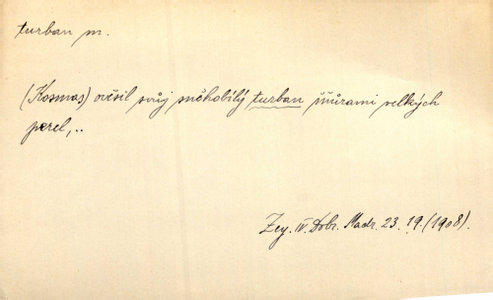 turban m.
(Kosmas) ověsil svůj sněhobílý turban šňůrami velkých
perel,..
Zey. IV. Dobr. Madr. 23. 19. (1908).